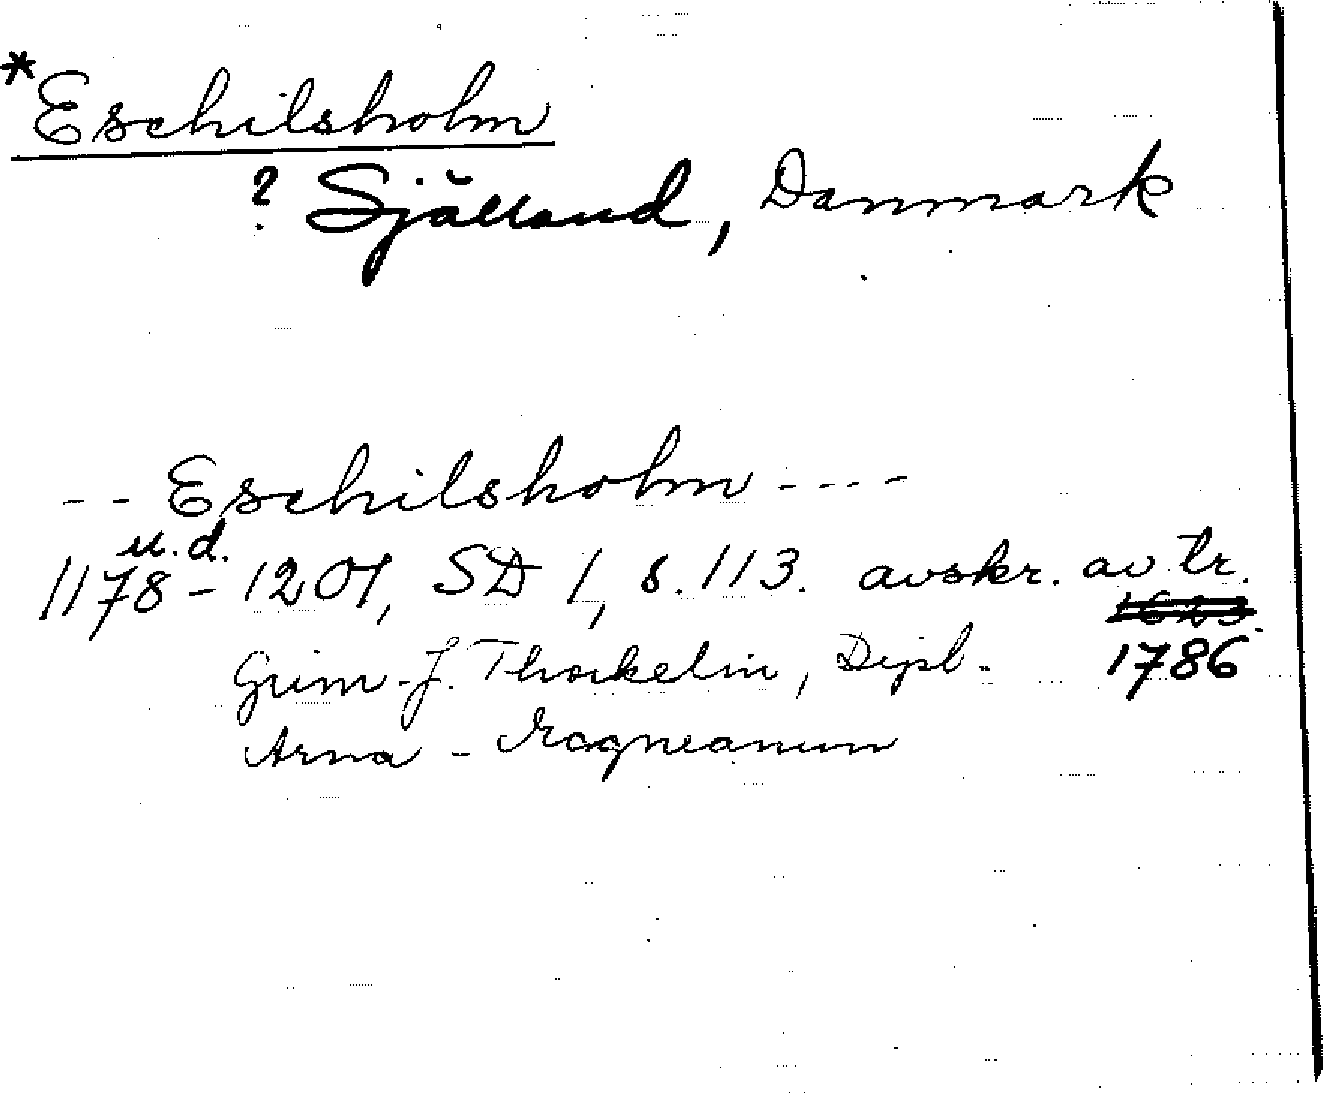 *Eschilsholm
? Själland, Danmark
-- Eschilsholm ----
u.d.
1178-1201, SD 1, s. 113. avskr. av tr.
1786
Grim-J. Thorkelin, Dipl.
Arna-Magneanum